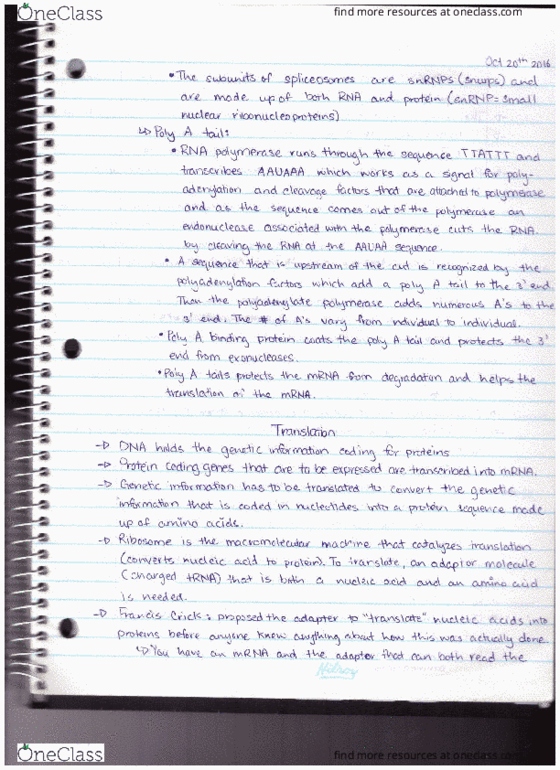 OneClass
find more resources at oneclass.com
Oct 20th 2016
• The subunits of spliceosomes are snRNPs (snurps) and
are made up of both RNA and protein (snRNP = small
nuclear ribonucleoproteins)
↳ Poly A tail:
• RNA polymerase runs through the sequence TTATTT and
transcribes AAUAAA which works as a signal for poly-
adenylation and cleavage factors that are attached to polymerase
and as the sequence comes out of the polymerase an
endonuclease associated with the polymerase cuts the RNA
by cleaving the RNA at the AAUAA sequence.
• A sequence that is upstream of the cut is recognized by the
polyadenylation factors which add a poly A tail to the 3' end.
Then the polyadenylate polymerase adds numerous A's to the
3' end. The # of A's vary from individual to individual.
• Poly A binding protein coats the poly A tail and protects the 3'
end from exonucleases.
• Poly A tails protects the mRNA from degradation and helps the
translation of the mRNA.
Translation
→ DNA holds the genetic information coding for proteins
→ Protein coding genes that are to be expressed are transcribed into mRNA.
→ Genetic information has to be translated to convert the genetic
information that is coded in nucleotides into a protein sequence made
up of amino acids.
→ Ribosome is the macromolecular machine that catalyzes translation
(converts nucleic acid to protein). To translate, an adaptor molecule
(charged tRNA) that is both a nucleic acid and an amino acid
is needed.
→ Francis Crick: proposed the adapter to "translate" nucleic acids into
proteins before anyone knew anything about how this was actually done
↳ You have an mRNA and the adaptor that can both read the
Hilroy
OneClass
find more resources at oneclass.com